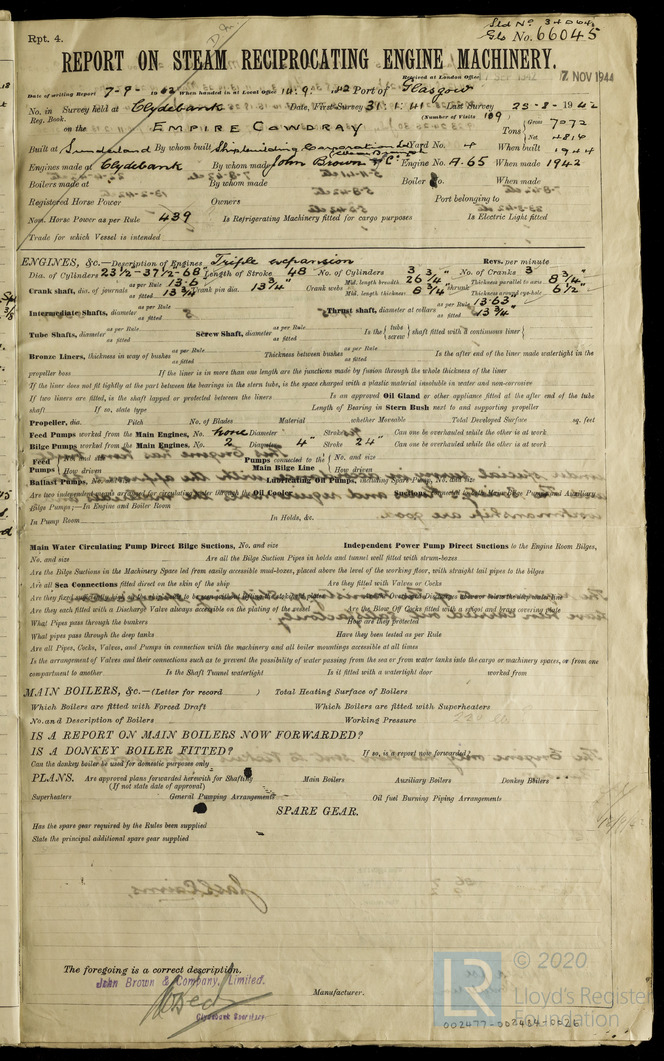 Rpt. 4.
Sld No. 34064
Gls No. 66045
REPORT ON STEAM RECIPROCATING ENGINE MACHINERY.
Received at London Office 7 NOV 1944
Date of writing Report 7-9- 1942 When handed in at Local Office 14.9.1942 Port of Glasgow
No. in Survey held at Clydebank Date, First Survey 31.1.41 Last Survey 23-8-1942
Reg. Book. (Number of Visits 109)
on the EMPIRE COWDRAY Tons Gross 7072
Net 4814
Built at Sunderland By whom built Shipbuilding Corporation Ltd Yard No. 4 When built 1944
Engines made at Clydebank By whom made John Brown & Co. Engine No. A-65 When made 1942
Boilers made at By whom made Boiler No. When made
Registered Horse Power Owners Port belonging to
Nom. Horse Power as per Rule 439 Is Refrigerating Machinery fitted for cargo purposes Is Electric Light fitted
Trade for which Vessel is intended
ENGINES, &c.—Description of Engines Triple expansion Revs. per minute
Dia. of Cylinders 23½-37½-68" Length of Stroke 48 No. of Cylinders 3 No. of Cranks 3
Crank shaft, dia. of journals as per Rule 13.6 as fitted 13¾" Crank pin dia. 13¾" Crank webs Mid. length breadth 26¼" Mid. length thickness 8¾" shrunk Thickness parallel to axis 8¾" Thickness around eye-hole 6½"
Intermediate Shafts, diameter as per Rule as fitted Thrust shaft, diameter at collars as per Rule 13.63" as fitted 13¾"
Tube Shafts, diameter as per Rule as fitted Screw Shaft, diameter as per Rule as fitted Is the { tube screw } shaft fitted with a continuous liner {
Bronze Liners, thickness in way of bushes as per Rule as fitted Thickness between bushes as per Rule as fitted Is the after end of the liner made watertight in the
propeller boss If the liner is in more than one length are the junctions made by fusion through the whole thickness of the liner
If the liner does not fit tightly at the part between the bearings in the stern tube, is the space charged with a plastic material insoluble in water and non-corrosive
If two liners are fitted, is the shaft lapped or protected between the liners Is an approved Oil Gland or other appliance fitted at the after end of the tube
shaft If so, state type Length of Bearing in Stern Bush next to and supporting propeller
Propeller, dia. Pitch No. of Blades Material whether Moveable Total Developed Surface sq. feet
Feed Pumps worked from the Main Engines, No. None Diameter Stroke Can one be overhauled while the other is at work
Bilge Pumps worked from the Main Engines, No. 2 Diameter 4" Stroke 24" Can one be overhauled while the other is at work
Feed Pumps { No. and size How driven Pumps connected to the Main Bilge Line { No. and size How driven
Ballast Pumps, No. and size Lubricating Oil Pumps, including Spare Pump, No. and size
Are two independent means arranged for circulating water through the Oil Cooler Suctions, connected to both Main Bilge Pumps and Auxiliary
Bilge Pumps;—In Engine and Boiler Room
In Pump Room In Holds, &c.
Main Water Circulating Pump Direct Bilge Suctions, No. and size Independent Power Pump Direct Suctions to the Engine Room Bilges,
No. and size Are all the Bilge Suction Pipes in holds and tunnel well fitted with strum-boxes
Are the Bilge Suctions in the Machinery Space led from easily accessible mud-boxes, placed above the level of the working floor, with straight tail pipes to the bilges
Are all Sea Connections fitted direct on the skin of the ship Are they fitted with Valves or Cocks
Are they each fitted with a Discharge Valve always accessible on the plating of the vessel Are the Blow Off Cocks fitted with a spigot and brass covering plate
What Pipes pass through the bunkers How are they protected
What pipes pass through the deep tanks Have they been tested as per Rule
Are all Pipes, Cocks, Valves, and Pumps in connection with the machinery and all boiler mountings accessible at all times
Is the arrangement of Valves and their connections such as to prevent the possibility of water passing from the sea or from water tanks into the cargo or machinery spaces, or from one
compartment to another Is the Shaft Tunnel watertight Is it fitted with a watertight door worked from
MAIN BOILERS, &c.—(Letter for record ) Total Heating Surface of Boilers
Which Boilers are fitted with Forced Draft Which Boilers are fitted with Superheaters
No. and Description of Boilers Working Pressure 220 lb
IS A REPORT ON MAIN BOILERS NOW FORWARDED?
IS A DONKEY BOILER FITTED? If so, is a report now forwarded?
Can the donkey boiler be used for domestic purposes only
PLANS. Are approved plans forwarded herewith for Shafting Main Boilers Auxiliary Boilers Donkey Boilers
(If not state date of approval)
Superheaters General Pumping Arrangements Oil fuel Burning Piping Arrangements
SPARE GEAR.
Has the spare gear required by the Rules been supplied
State the principal additional spare gear supplied
The foregoing is a correct description.
John Brown & Company, Limited.
Manufacturer.
Clydebank Secretary
LR
© 2020
Lloyd's Register
Foundation
002477-002484-0026